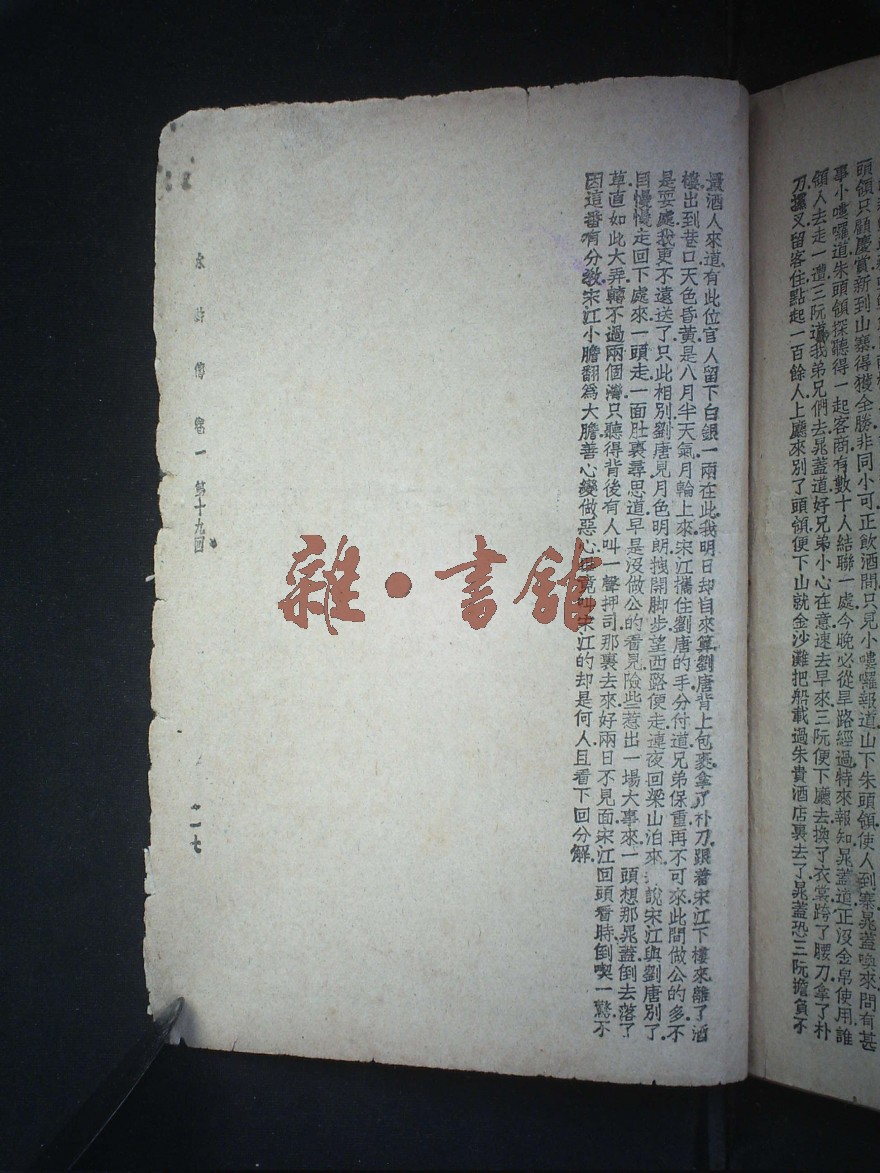 頭領只顧慶賞新到山寨得獲全勝非同小可正飲酒間只見小嘍囉報道山下朱頭領使人到寨晁蓋喚來問有甚
事小嘍囉道朱頭領探聽得一起客商有數十人結聯一處今晚必從旱路經過特來報知晁蓋道正沒金帛使用誰
領人去走一遭三阮道我弟兄們去晁蓋道好兄弟小心在意速去早來三阮便下廳去換了衣裳跨了腰刀拿了朴
刀攩叉留客住點起一百餘人上廳來別了頭領便下山就金沙灘把船載過朱貴酒店裏去了晁蓋恐三阮擔負不
量酒人來道有此位官人留下白銀一兩在此我明日却自來算劉唐背上包裹拿了朴刀跟着宋江下樓來離了酒
樓出到巷口天色昏黃是八月半天氣月輪上來宋江攜住劉唐的手分付道兄弟保重再不可來此間做公的多不
是耍處我更不遠送了只此相別劉唐見月色明朗拽開脚步望西路便走連夜回梁山泊來 說宋江與劉唐別了
自慢慢走回下處來一頭走一面肚裏尋思道早是沒做公的看見險些惹出一場大事來一頭想那晁蓋倒去落了
草直如此大弄轉不過兩個灣只聽得背後有人叫一聲押司那裏去來好兩日不見面宋江回頭看時倒喫一驚不
因這番有分教宋江小膽翻爲大膽善心變做惡心 竟叫宋江的却是何人且看下回分解
水滸傳 卷一 第十九回
二一七
雜·書館